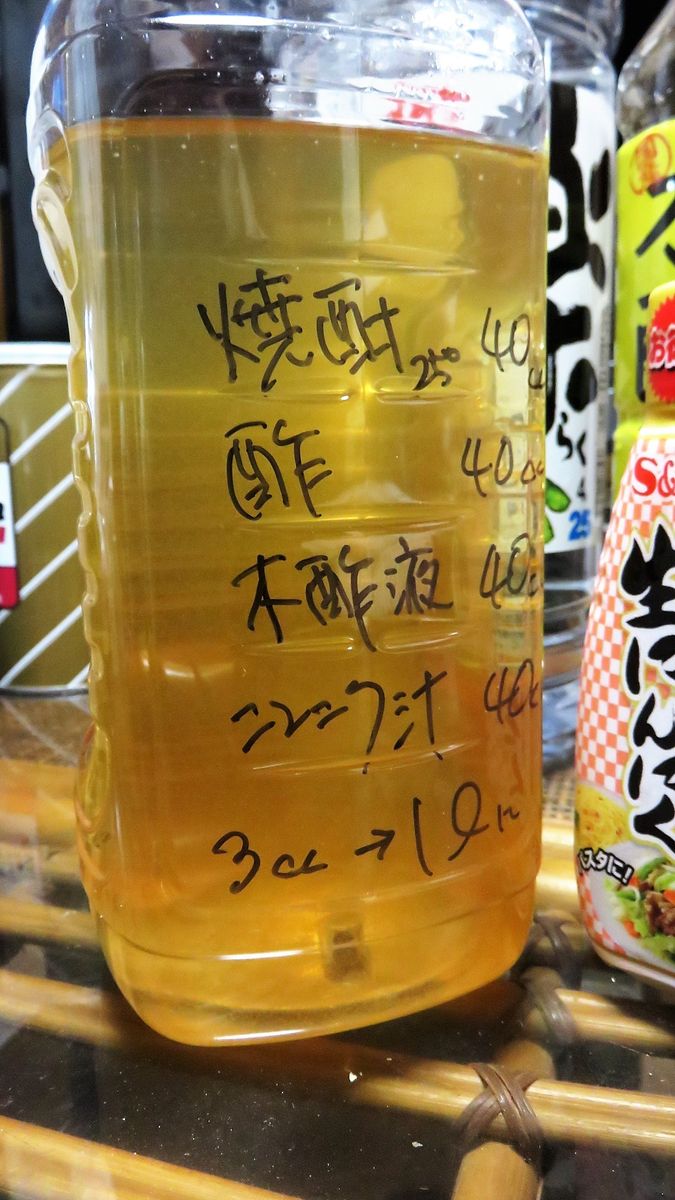 焼酎25° 40cc
酢 40cc
木酢液 40cc
ニンニク汁 40c
3cc→1ℓに
らく
25
お
S&
生にんにく
パスタに!